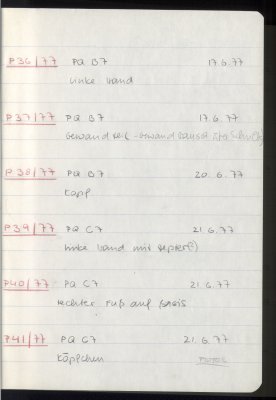 P36/77 PQ B7 17.6.77
linke hand
P37/77 PQ B7 17.6.77
gewand teil - gewand bausch über
P38/77 PQ B7 20.6.77
Kopf
P39/77 PQ C7 21.6.77
linke hand mit zepter(?)
P40/77 PQ C7 21.6.77
rechter Fuß auf basis
P41/77 PQ C7 21.6.77
Köpfchen